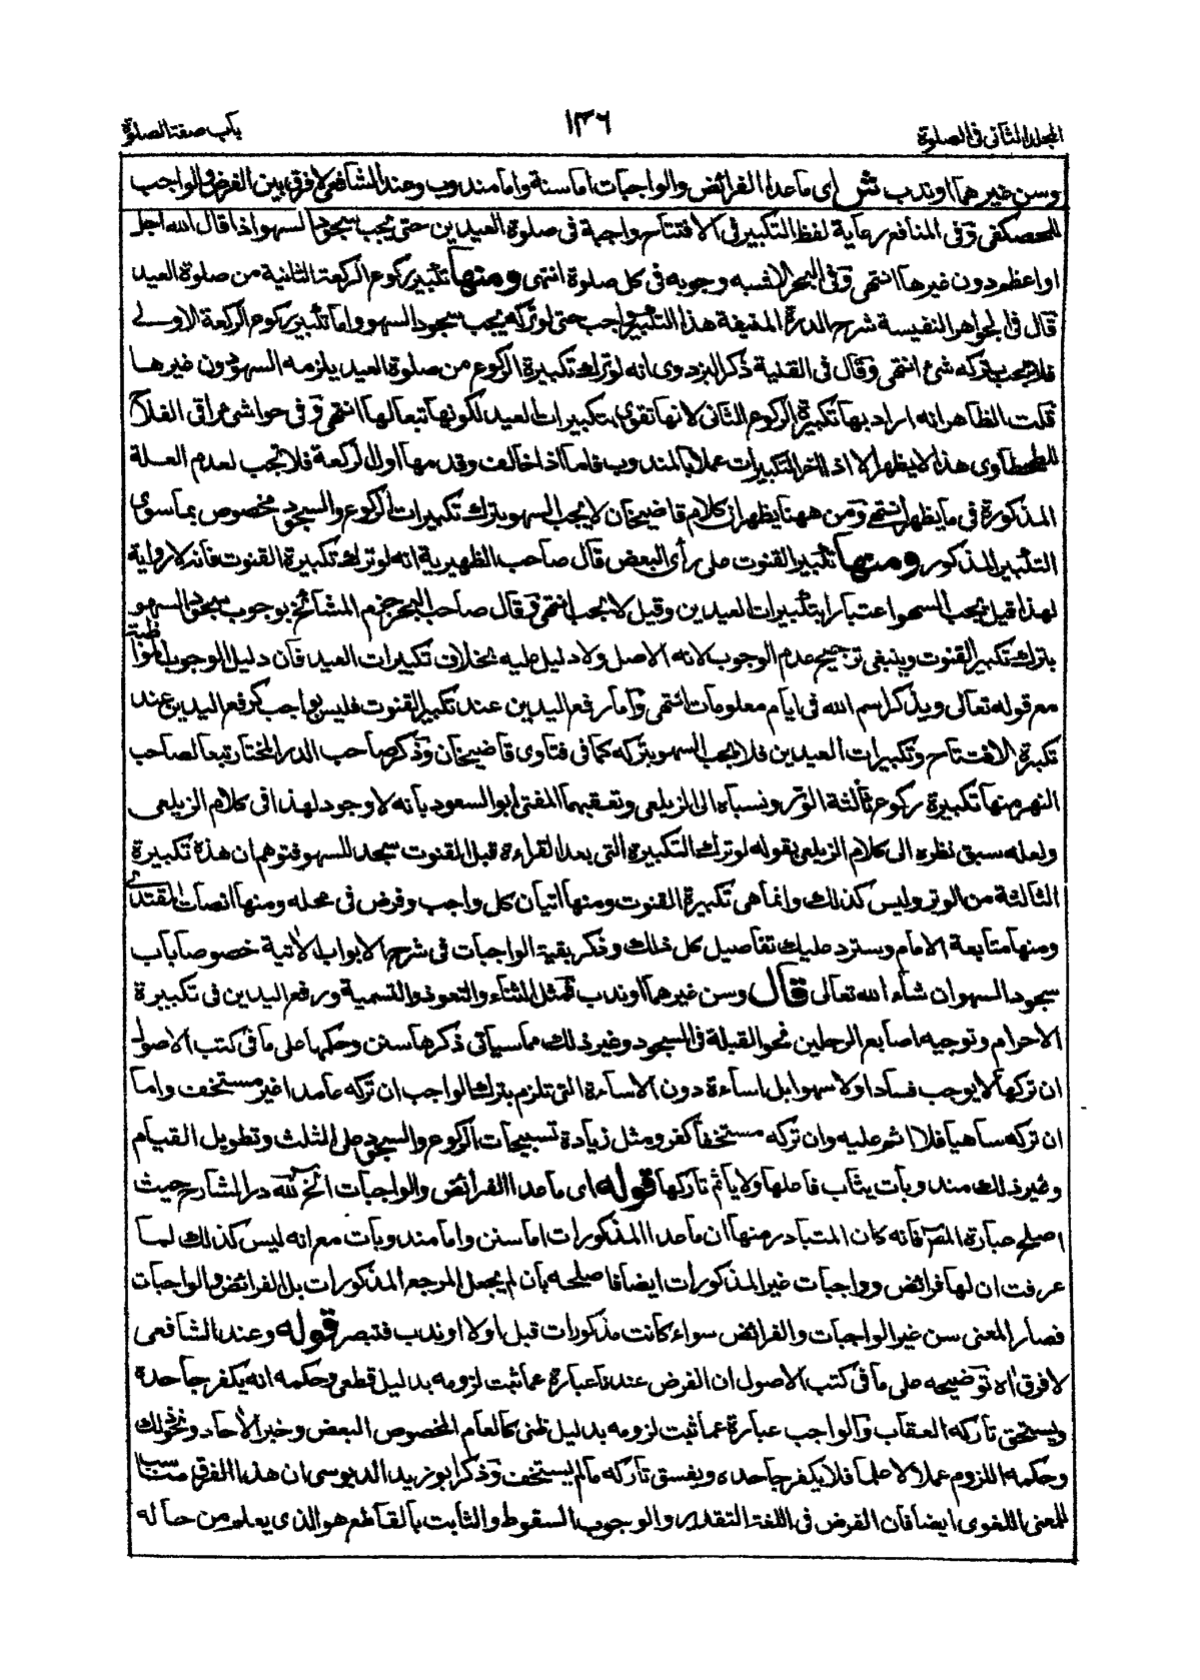 المجلد الثاني في الصلوة
١٣٦
باب صفة الصلوة
وسن غيرهما او ندب ش اى ما عدا الفرائض والواجبات اما سنة واما مندوب وعند الشافعي لا فرق بين الفرض والواجب
للحصكفى وفى المنافع رعاية لفظ التكبير فى الافتتاح واجبة فى صلوة العيدين حتى يجب سجود السهو اذا قال الله اجل
او اعظم دون غيرها انتهى وفى البحر الاشبه وجوبه فى كل صلوة انتهى ومنها تكبير ركوع الركعة الثانية من صلوة العيد
قال فى الجواهر النفيسة شرح الدرة المنيفة هذا التكبير واجب حتى لو تركه يجب سجود السهو واما تكبير ركوع الركعة الاولى
فلا يجب بتركه شئ انتهى وقال فى القنية ذكر البزدوى انه لو ترك تكبيرة الركوع من صلوة العيد يلزمه السهو دون غيرها
قلت الظاهر انه اراد بها تكبيرة الركوع الثانى لانها تقوى بتكبيرات العيد لكونها تبعا لها انتهى وفى حواشى مراقى الفلاح
للطحطاوى هذا لا يظهر الا اذا اخر التكبيرات عملا بالمندوب فاما اذا خالف وقدمها اول الركعة فلا تجب لعدم العلة
المذكورة فى ما يظهر انتهى ومن ههنا يظهر ان كلام قاضيخان لا يجب السهو بترك تكبيرات الركوع والسجود مخصوص بما سوى
التكبير المذكور ومنها تكبير القنوت على رأى البعض قال صاحب الظهيرية انه لو ترك تكبيرة القنوت فانه لا رواية
لهذا قيل يجب السهو اعتبارا بتكبيرات العيدين وقيل لا يجب انتهى وقال صاحب البحر جزم المشائخ بوجوب سجود السهو
بترك تكبير القنوت وينبغى ترجيح عدم الوجوب لانه الاصل ولا دليل عليه بخلاف تكبيرات العيد فان دليل الوجوب المواظبة
مع قوله تعالى ويذكر اسم الله فى ايام معلومات انتهى واما رفع اليدين عند تكبير القنوت فليس بواجب كرفع اليدين عند
تكبيرة الافتتاح وتكبيرات العيدين فلا يجب السهو بتركه كما فى فتاوى قاضيخان وذكر صاحب الدر المختار تبعا لصاحب
النهر منها تكبيرة ركوع ثالثة الوتر ونسباه الى الزيلعى وتعقبهما المفتى ابو السعود بانه لا وجود لهذا فى كلام الزيلعى
ولعله سبق نظره الى كلام الزيلعى بقوله لو ترك التكبيرة التى بعد القراءة قبل القنوت سجد للسهو فتوهم ان هذه تكبيرة
الثالثة من الوتر وليس كذلك وانما هى تكبيرة القنوت ومنها اتيان كل واجب وفرض فى محله ومنها انصات المقتدى
ومنها متابعة الامام وسترد عليك تفاصيل كل ذلك وذكر بقية الواجبات فى شرح الابواب الاتية خصوصا باب
سجود السهو ان شاء الله تعالى قال وسن غيرهما او ندب فمثل الثناء والتعوذ والتسمية ورفع اليدين فى تكبيرة
الاحرام وتوجيه اصابع الرجلين نحو القبلة فى السجود وغير ذلك مما سيأتى ذكرها سنن وحكمها على ما فى كتب الاصول
ان تركها لا يوجب فسادا ولا سهوا بل اساءة دون الاساءة التى تلزم بترك الواجب ان تركه عامدا غير مستخف واما
ان تركه ساهيا فلا اثم عليه وان تركه مستخفا كفر ومثل زيادة تسبيحات الركوع والسجود على الثلث وتطويل القيام
وغير ذلك مندوبات يثاب فاعلها ولا يأثم تاركها قوله اى ما عدا الفرائض والواجبات الخ لله در الشارح حيث
اصلح عبارة المص فانه كان المتبادر منها ان ما عدا المذكورات اما سنن واما مندوبات مع انه ليس كذلك لما
عرفت ان لها فرائض وواجبات غير المذكورات ايضا فاصلحه بان لم يجعل المرجع المذكورات بل الفرائض والواجبات
فصار المعنى سن غير الواجبات والفرائض سواء كانت مذكورات قبل اولا او ندب فتبصر قوله وعند الشافعى
لا فرق الا توضيحه على ما فى كتب الاصول ان الفرض عندنا عبارة عما ثبت لزومه بدليل قطعى وحكمه انه يكفر جاحده
ويستحق تاركه العقاب والواجب عبارة عما ثبت لزومه بدليل ظنى كالعام المخصوص البعض وخبر الآحاد ونحو ذلك
وحكمه اللزوم عملا لا علما فلا يكفر جاحده ويفسق تاركه ما لم يستخف وذكر ابو زيد الدبوسى ان هذا الفرق مناسب
للمعنى اللغوى ايضا فان الفرض فى اللغة التقدير والوجوب السقوط والثابت بالقاطع هو الذى يعلم من حاله